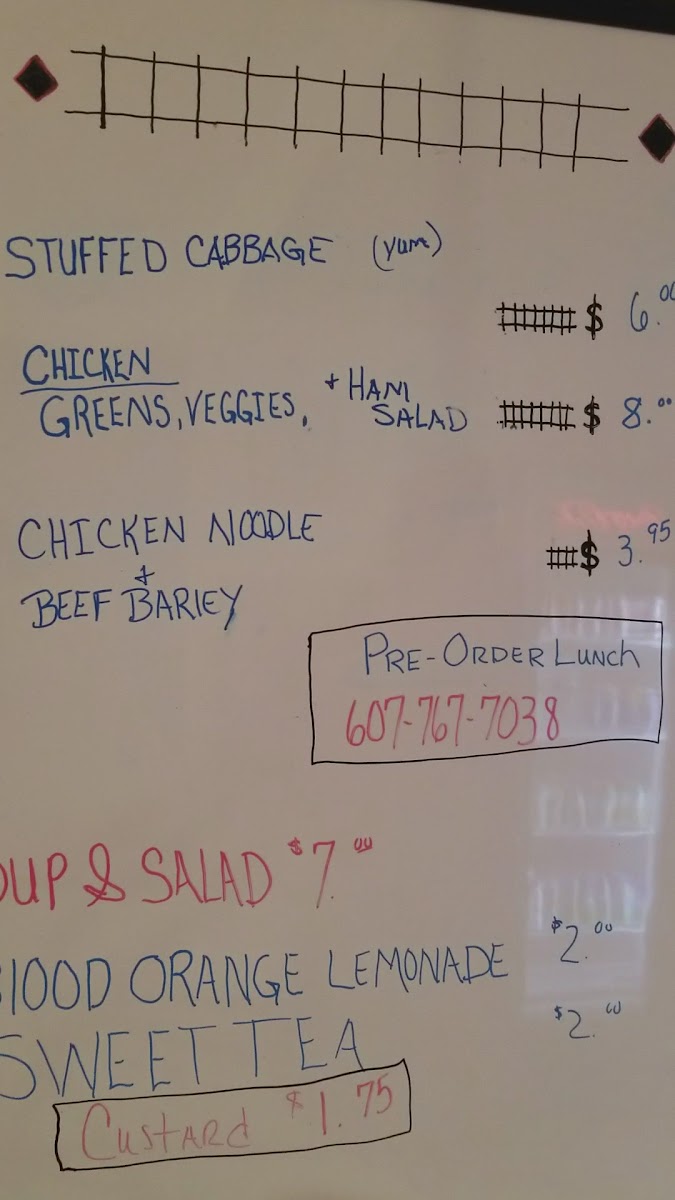 STUFFED CABBAGE (yum)
$ 6.00
CHICKEN
GREENS, VEGGIES, + HAM SALAD $ 8.00
CHICKEN NOODLE
+
BEEF BARlEY
$ 3.95
PRE-ORDER LUNCH
607-767-7038
OUP & SALAD $7.00
BlOOD ORANGE LEMONADE $2.00
SWEET TEA $2.00
CUSTARD $1.75